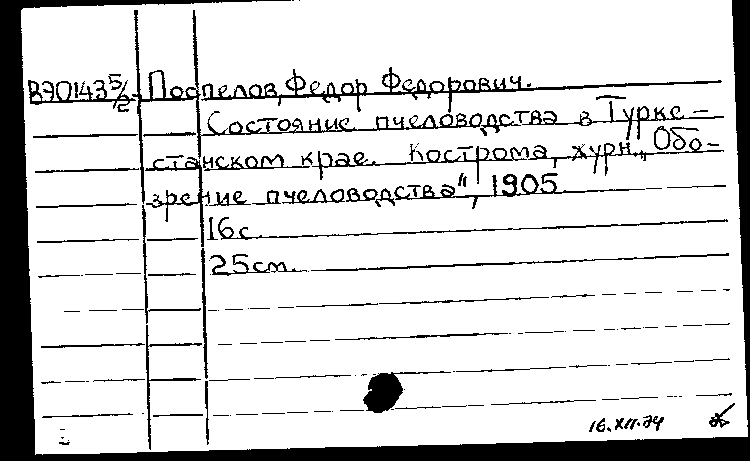 В70143 5/2 Поспелов, Федор Федорович.
Состояние пчеловодства в Турке-
станском крае. Кострома, журн. „Обо-
зрение пчеловодства“, 1905
16 с.
25 см.
16.XII.74